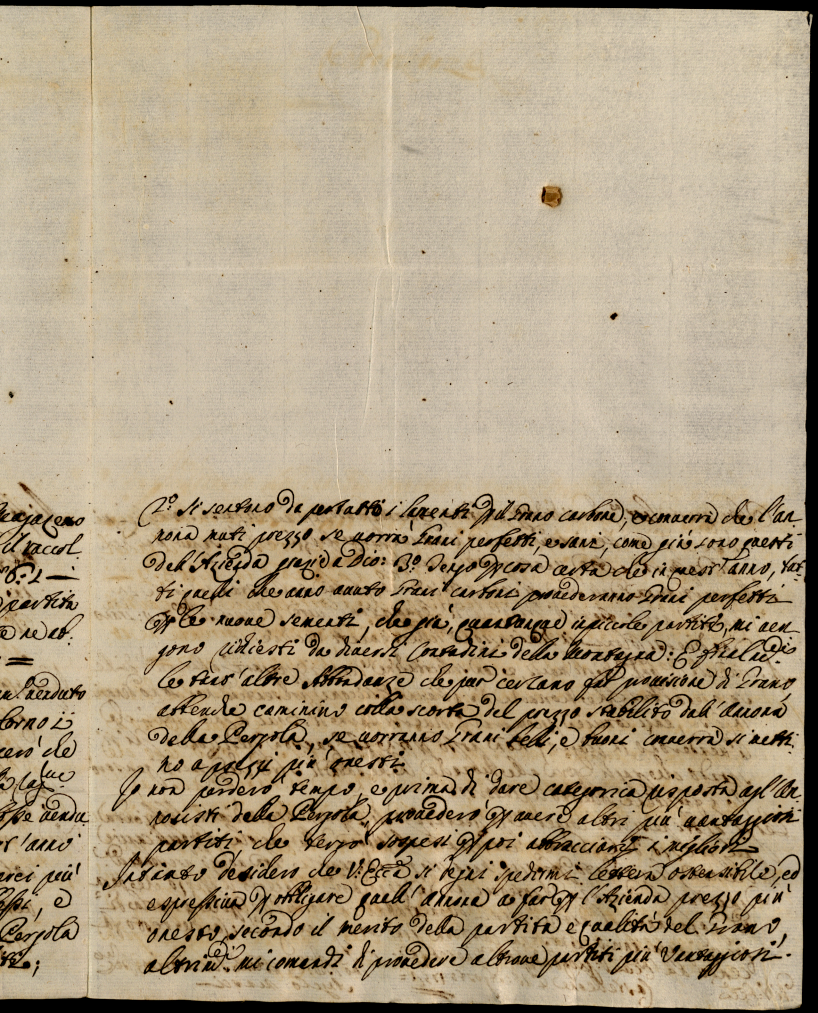 Vajaceno
il raccol
partita
te ne ab.
=
an: venduto
però che
esse vendu
st'anno
arci più
e
Pergola
2.° Si sentono da per tutto i lamenti del Grano carbone, e converrà che l'an-
nona muti prezzo se vorrà Grani perfetti, e sani, come già sono questi
dell'Azienda grazie a Dio: 3.° Tengo per cosa certa che in quest'anno, tut-
ti quelli che anno avuto Grani carboni provederanno Grani perfetti
per le nuove sementi, che già, quantunque in piccole partite, mi ven-
gono richiesti da diversi Contadini della Montagna: E
le altre Abbondanze che pur cercano far provisione di Grano,
attenche caminino colla scorta del prezzo stabilito dall'Annona
della Pergola, se vorranno Grani belli, e buoni converrà si metti-
no a prezzi più onesti.
Io non perderò tempo, e prima di dare categorica risposta agl'An-
nonisti della Pergola, provederò per avere altri più vantaggiosi
partiti, che terrò sospesi per poi abbracciare i migliori
Intanto desidero che V. Ecc.za si degni spedirmi lettera ostensibile, ed
espressiva per obligare quell'Annona a far per l'Azienda prezzo più
onesto, secondo il merito della partita e qualità del Grano,
mi comandi di provedere altrove partiti più vantaggiosi.